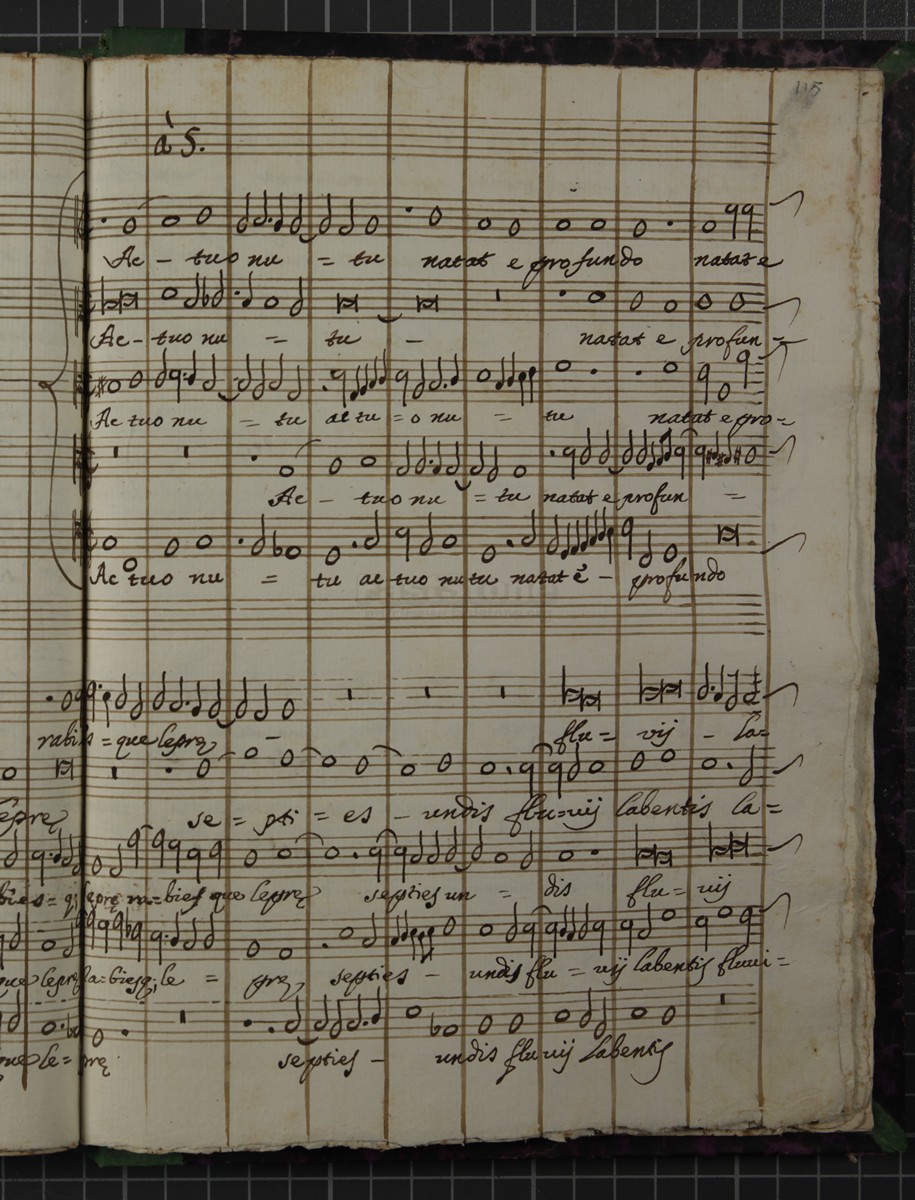 115
à 5.
Ac - tuo nu = tu natat e profundo natat e
Ac - tuo nu = tu - natat e profun =
Ac tuo nu = tu ac tu = o nu = tu natat e pro =
Ac - tuo nu = tu natat e profun =
Ac tuo nu = tu ac tuo nu tu natat è - profundo
rabies = que leprę flu = vij - la =
leprę se = pti = es - undis flu = vij labentis la =
bies = q; leprę ra = bies que leprę septies un = dis flu = vij
que leprę ra = biesq; le = prę septies - undis flu = vij labentis fluvi =
que le = prę septies - undis fluvij labentis